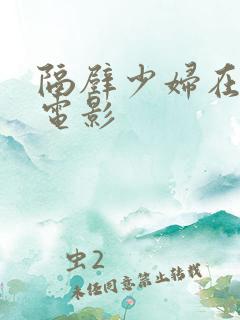 隔壁少婦在
電影
虫2
未经同意禁止转载